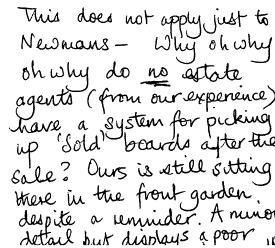 This does not apply just to
Newmans - Why oh why
oh why do no estate
agents (from our experience)
have a system for picking
up 'Sold' boards after the
sale? Ours is still sitting
there in the front garden
despite a reminder. A minor
detail but displays a poor